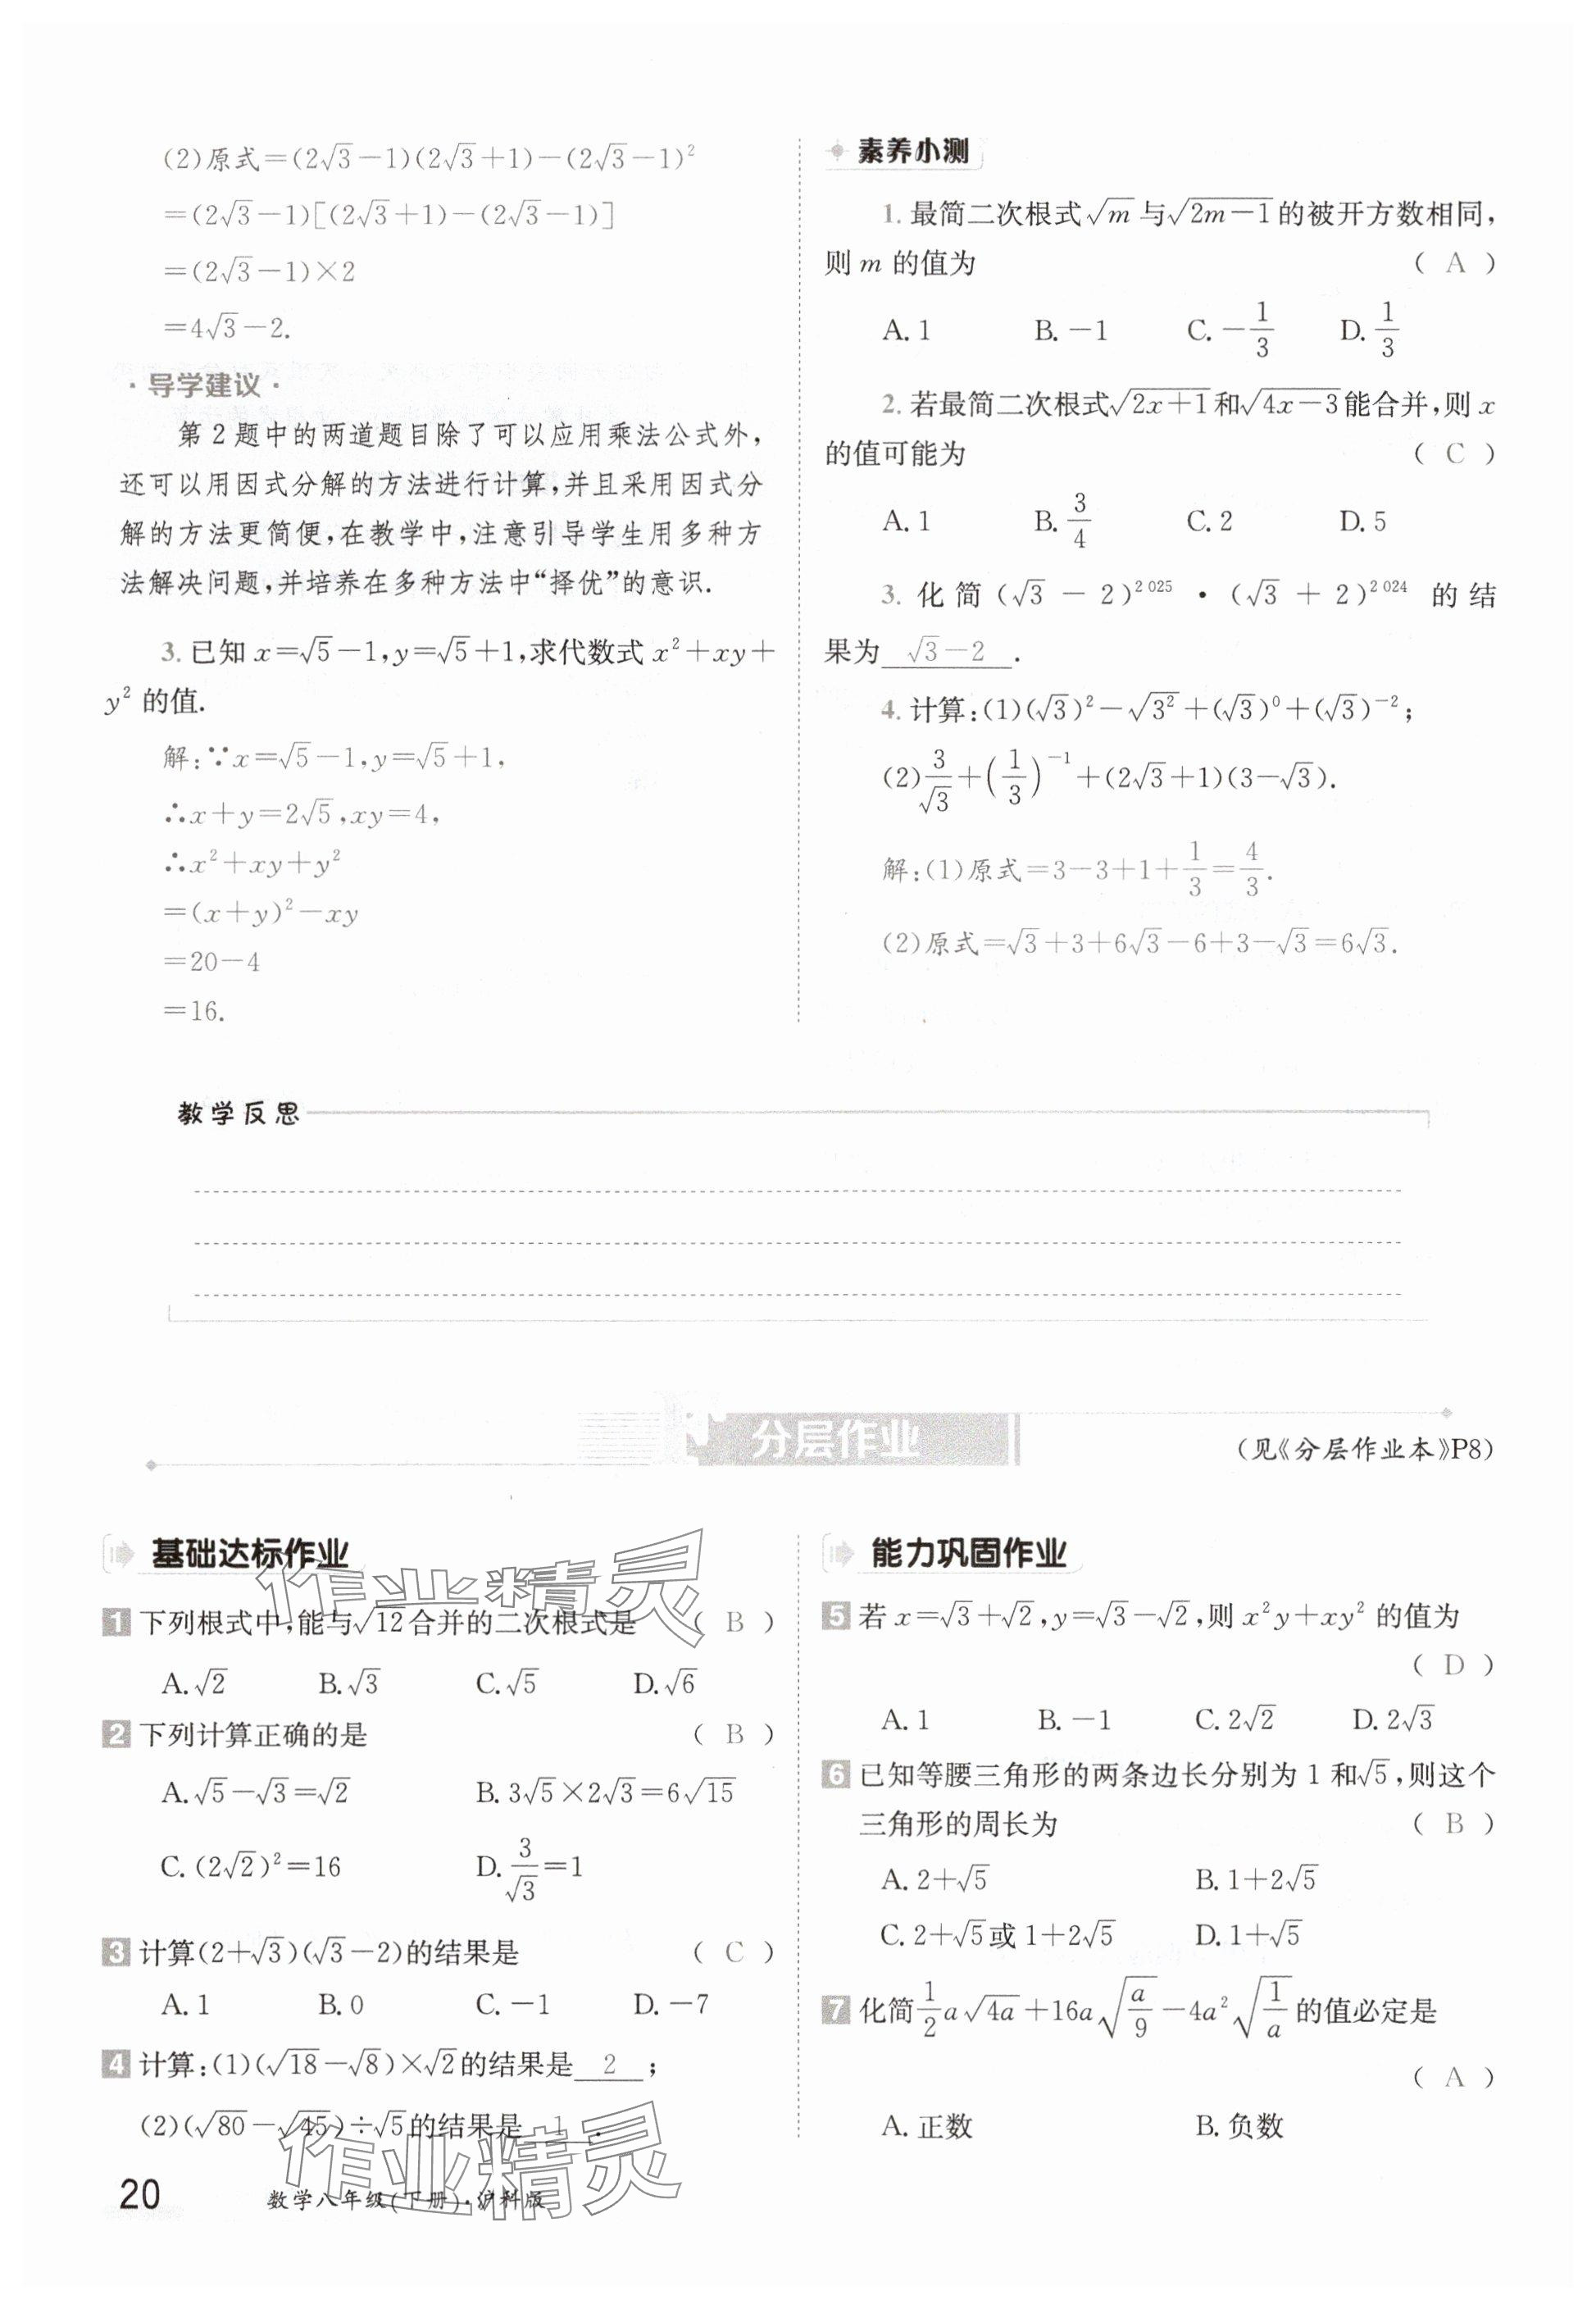 (2)原式=(2√3-1)(2√3+1)-(2√3-1)²
=(2√3-1)[(2√3+1)-(2√3-1)]
=(2√3-1)×2
=4√3-2.
·导学建议·
第2题中的两道题目除了可以应用乘法公式外,
还可以用因式分解的方法进行计算,并且采用因式分
解的方法更简便,在教学中,注意引导学生用多种方
法解决问题,并培养在多种方法中“择优”的意识.
3.已知x=√5-1,y=√5+1,求代数式x²+xy+
y²的值.
解:∵x=√5-1,y=√5+1,
∴x+y=2√5,xy=4,
∴x²+xy+y²
=(x+y)²-xy
=20-4
=16.
素养小测
1.最简二次根式√m与√(2m-1)的被开方数相同,
则m的值为 ( A )
A.1 B.-1 C.-1/3 D.1/3
2.若最简二次根式√(2x+1)和√(4x-3)能合并,则x
的值可能为 ( C )
A.1 B.3/4 C.2 D.5
3.化简(√3-2)²⁰²⁵·(√3+2)²⁰²⁴的结
果为 √3-2 .
4.计算:(1)(√3)²-√3²+(√3)⁰+(√3)⁻²;
(2)3/√3+(1/3)⁻¹+(2√3+1)(3-√3).
解:(1)原式=3-3+1+1/3=4/3.
(2)原式=√3+3+6√3-6+3-√3=6√3.
教学反思
分层作业
(见《分层作业本》P8)
基础达标作业
1 下列根式中,能与√12合并的二次根式是 ( B )
A.√2 B.√3 C.√5 D.√6
2 下列计算正确的是 ( B )
A.√5-√3=√2 B.3√5×2√3=6√15
C.(2√2)²=16 D.3/√3=1
3 计算(2+√3)(√3-2)的结果是 ( C )
A.1 B.0 C.-1 D.-7
4 计算:(1)(√18-√8)×√2的结果是 2 ;
(2)(√80-√45)÷√5的结果是 1 .
能力巩固作业
5 若x=√3+√2,y=√3-√2,则x²y+xy²的值为
( D )
A.1 B.-1 C.2√2 D.2√3
6 已知等腰三角形的两条边长分别为1和√5,则这个
三角形的周长为 ( B )
A.2+√5 B.1+2√5
C.2+√5或1+2√5 D.1+√5
7 化简1/2a√(4a)+16a√(a/9)-4a²√(1/a)的值必定是
( A )
A.正数 B.负数
20 数学八年级(下册)·沪科版
作业精灵
作业精灵